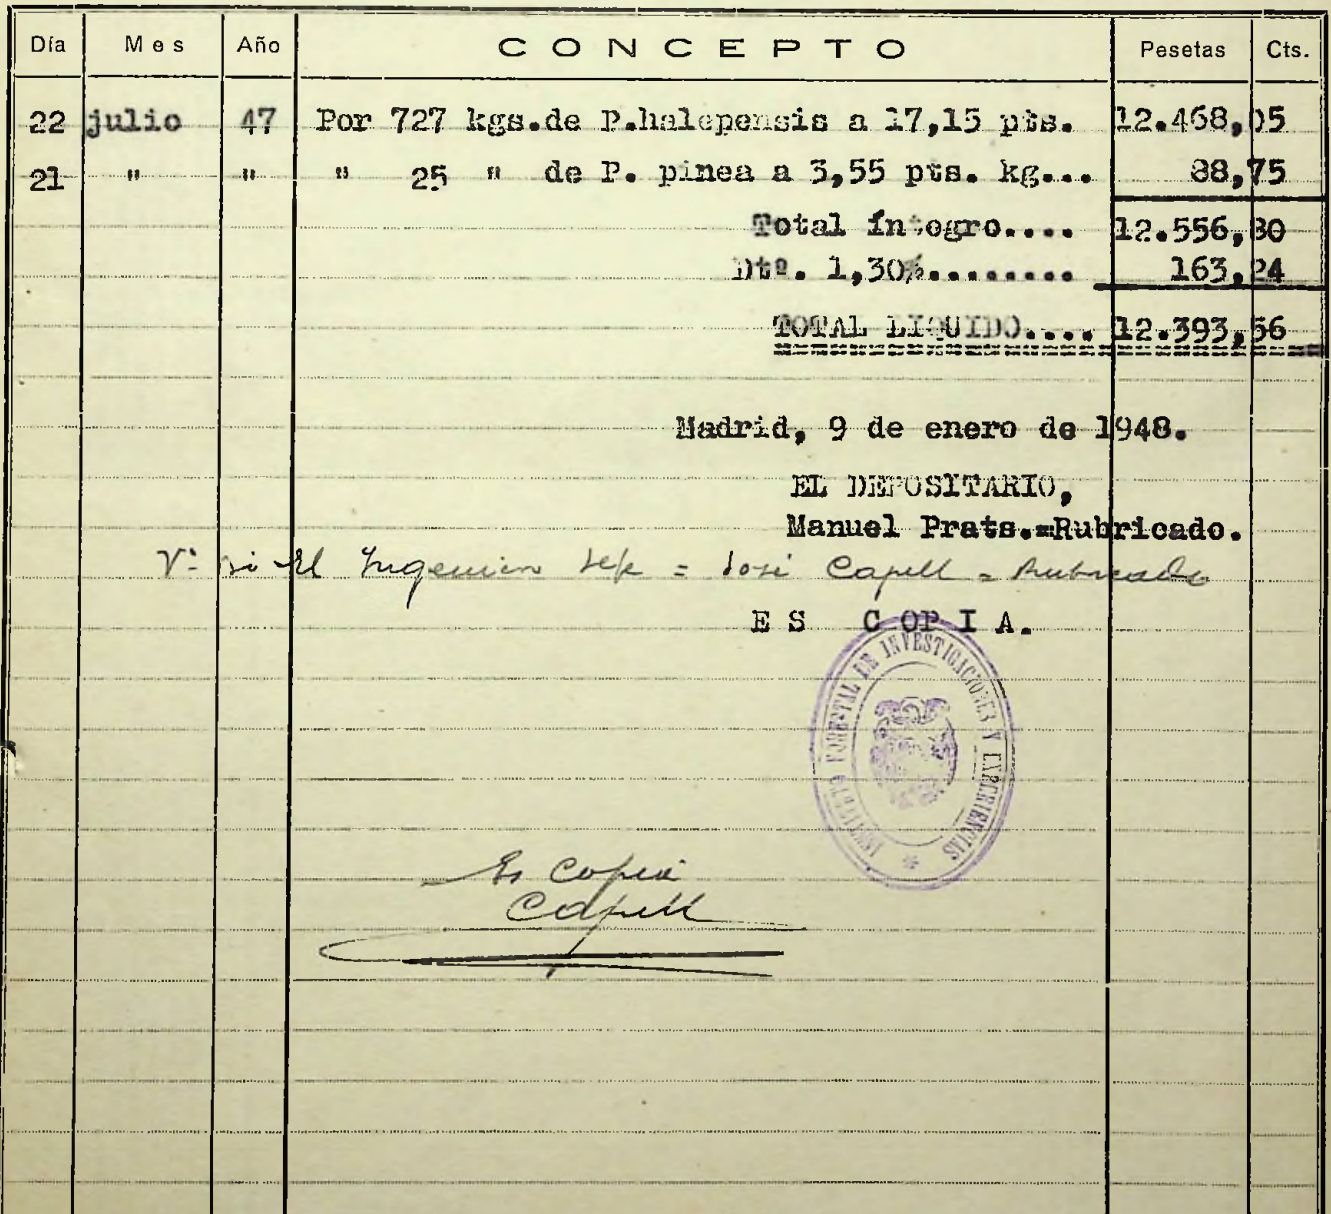 Día Mes Año CONCEPTO Pesetas Cts.
22 julio 47 Por 727 kgs.de P.halepensis a 17,15 pts. 12.468,05
21 " " " 25 " de P. pinea a 3,55 pts. kg... 88,75
Total íntegro.... 12.556,80
Dtº. 1,30%......... 163,24
TOTAL LIQUIDO.... 12.393,56
Madrid, 9 de enero de 1948.
EL DEPOSITARIO,
Manuel Prats.=Rubricado.
Vº Bº El Ingeniero Jefe = José Capell = Rubricado
ES COPIA.
INSTITUTO FORESTAL DE INVESTIGACIONES Y EXPERIENCIAS
Es copia
Capell